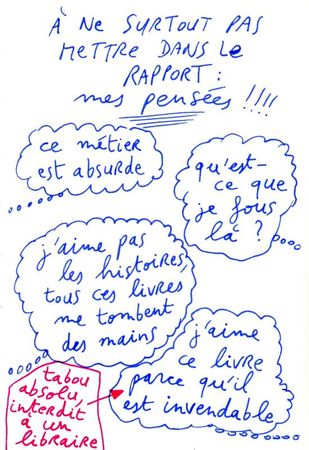 À NE SURTOUT PAS
METTRE DANS LE
RAPPORT :
mes pensées !!!!
ce métier
est absurde
qu'est-
ce que
je fous
là ?
j'aime pas
les histoires,
tous ces livres
me tombent
des mains
j'aime
ce livre
parce qu'il
est invendable
tabou
absolu,
interdit
à un
libraire